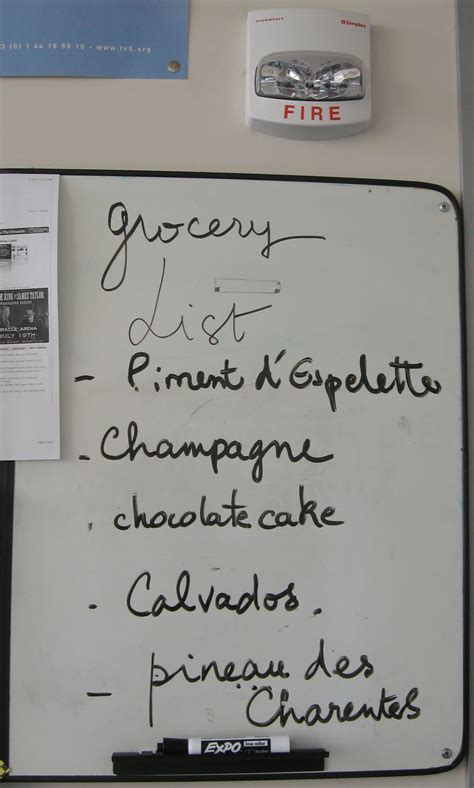 3 (0) 1 44 18 55 10 - www.tv5.org
Simplex
FIRE
grocery
List
- Piment d'Espelette
- Champagne
. chocolate cake
- Calvados.
- pineau des
Charentes
ORACLE ARENA
JULY 19TH
EXPO low odor